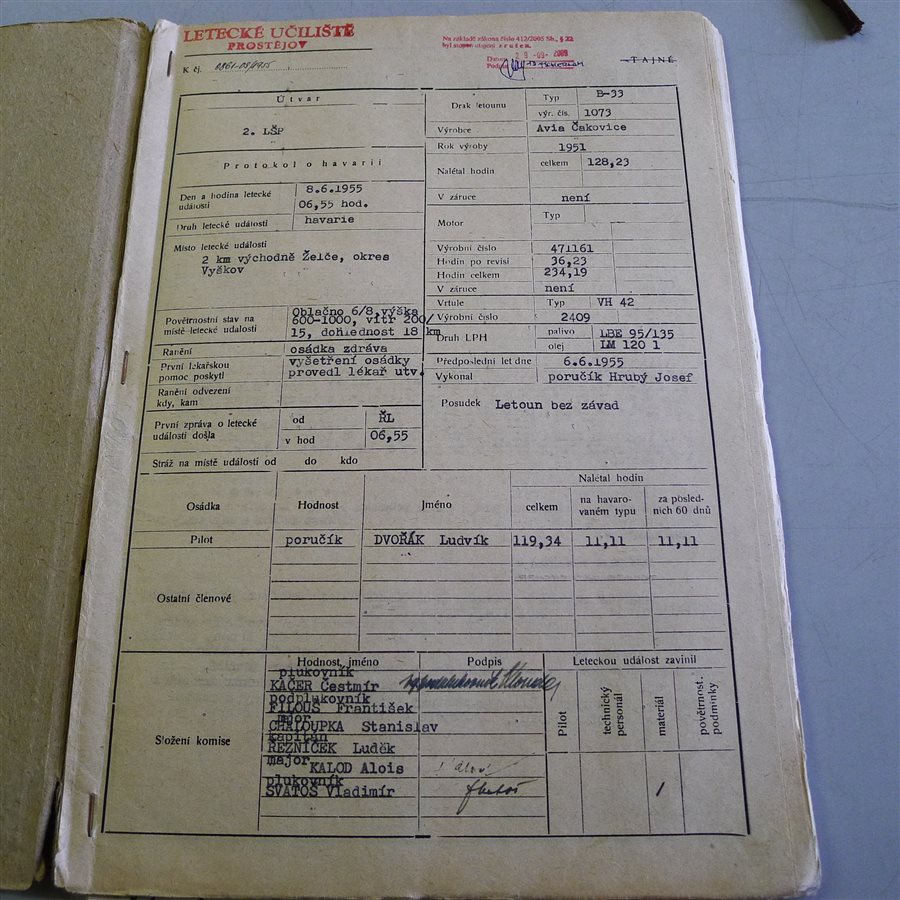 LETECKÉ UČILIŠTĚ
PROSTĚJOV
K čj.
Na základě zákona číslo 412/2005 Sb., § 22
byl stupeň utajení zrušen.
Datum 29 -09- 2009
Podpis
TAJNÉ
Útvar
2. LŠP
Protokol o havarii
Den a hodina letecké události
8.6.1955
06,55 hod.
Druh letecké události
havarie
Místo letecké události
2 km východně Želče, okres
Vyškov
Povětrnostní stav na
místě letecké události
Oblačno 6/8, výška
600-1000, vítr 200/
15, dohlednost 18 km
Ranění
osádka zdráva
První lékařskou
pomoc poskytl
vyšetření osádky
provedl lékař utv.
Ranění odvezeni
kdy, kam
První zpráva o letecké
události došla
od
ŘL
v hod
06,55
Stráž na místě události od do kdo
Drak letounu
Typ
B-33
výr. čís.
1073
Výrobce
Avia Čakovice
Rok výroby
1951
Nalétal hodin
celkem
128,23
V záruce
není
Motor
Typ
Výrobní číslo
471161
Hodin po revisi
36,23
Hodin celkem
234,19
V záruce
není
Vrtule
Typ
VH 42
Výrobní číslo
2409
Druh LPH
palivo
LBE 95/135
olej
LM 120 1
Předposlední let dne
6.6.1955
Vykonal
poručík Hrubý Josef
Posudek
Letoun bez závad
Osádka
Hodnost
Jméno
Nalétal hodin
celkem
na havaro-
vaném typu
za posled-
ních 60 dnů
Pilot
poručík
DVOŘÁK Ludvík
119,34
11,11
11,11
Ostatní členové
Složení komise
Hodnost, jméno
Podpis
plukovník
KAČER Čestmír
podplukovník
FILOUŠ František
major
CHALOUPKA Stanislav
kapitán
ŘEZNÍČEK Luděk
major
KALOD Alois
plukovník
SVATOŠ Vladimír
Leteckou událost zavinil
Pilot
technický
personál
materiál
povětrnost.
podmínky
1